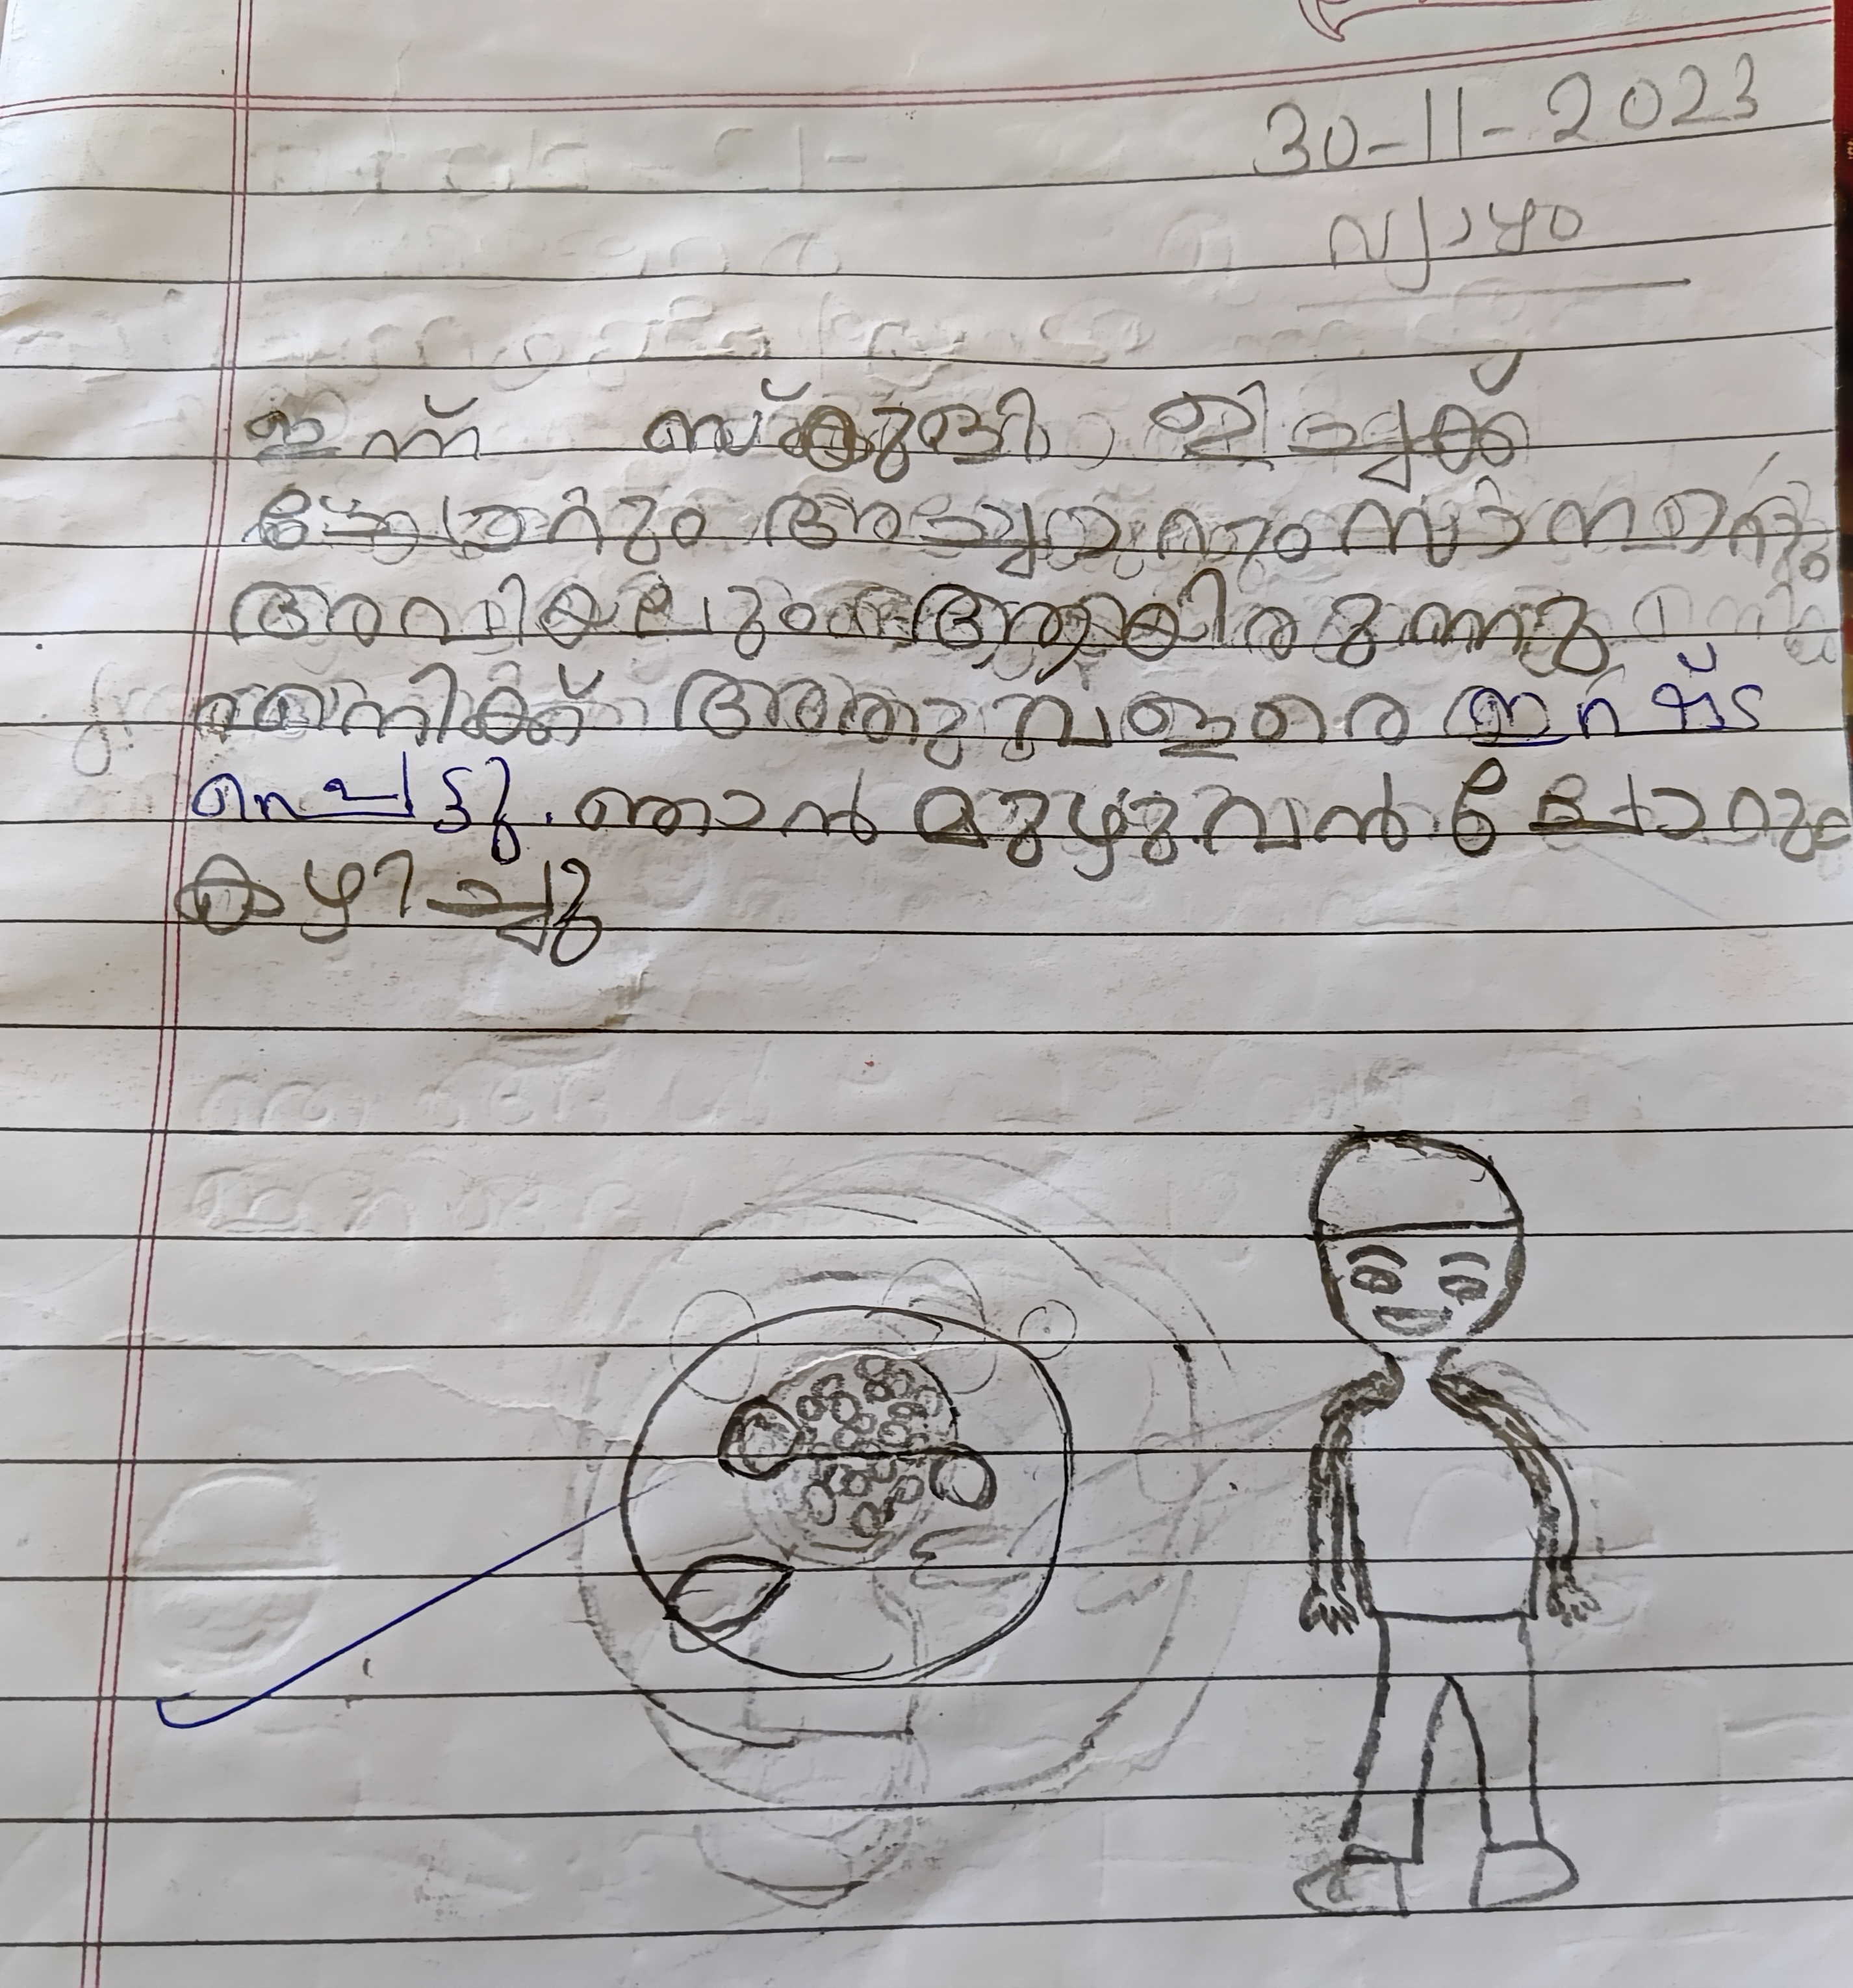 30-11-2023
വ്യാഴം
ഇന്ന് സ്കൂളിൽ ഉച്ചക്ക്
ചോറും അച്ചാറും സാമ്പാറും
അവിയലും ആയിരുന്നു
എനിക്ക് അതു വളരെ ഇഷ്ട
പ്പെട്ടു. ഞാൻ മുഴുവൻ ചോറും
കഴിച്ചു